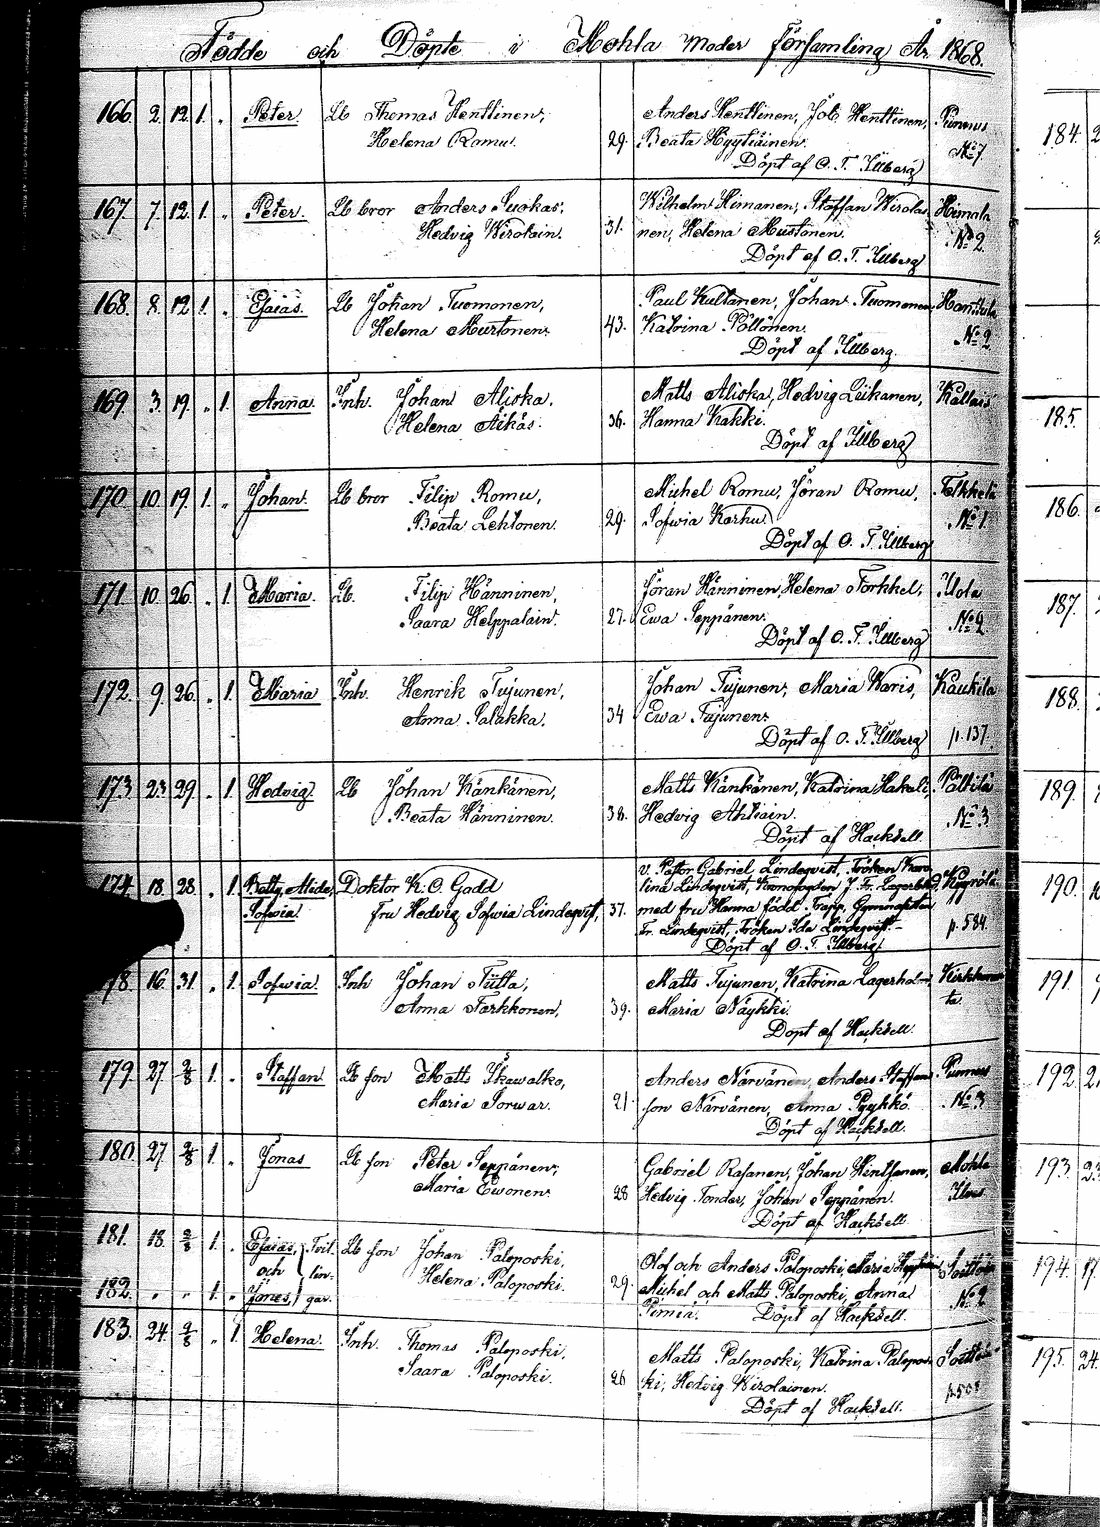 Födde och Döpte i Mohla Moder Församling År 1868.
166. 2. 12. 1. „ Peter. Lb Thomas Henttinen, Anders Henttinen, Job Henttinen, Pinnus
Helena Romu. 29. Beata Hyytiäinen. No 7.
Döpt af O. T. Illberg
167. 7. 12. 1. „ Peter. Lb bror Anders Suokas, Wilhelm Himanen, Staffan Wirolai- Himala
Hedvig Wirolain. 31. nen, Helena Mustonen. No 2.
Döpt af O. T. Illberg
168. 8. 12. 1. „ Esaias. Lb Johan Tuomonen, Paul Kultanen, Johan Tuomonen,
Helena Murtonen. 43. Katrina Pöllönen. No 2.
Döpt af Illberg.
169. 3. 19. „ 1. Anna. Inh. Johan Aliska, Matts Aliska, Hedvig Leikanen,
Helena Äikäs. 36. Hanna Kakki.
Döpt af Illberg
170. 10. 19. 1. „ Johan. Lb bror Filip Romu, Michel Romu, Jöran Romu,
Beata Lehtonen. 29. Sofwia Karhu. No 1.
Döpt af O. T. Illberg
171. 10. 26. „ 1. Maria. Lb. Filip Hänninen, Jöran Hänninen, Helena Torkkel,
Saara Helppalain. 27. Ewa Seppänen. No 2.
Döpt af O. T. Illberg
172. 9. 26. „ 1. Maria Inh. Henrik Tujunen, Johan Tujunen, Maria Waris, Kaukila
Anna Salakka. 34 Ewa Tujunen. p. 137.
Döpt af O. T. Illberg
173. 23. 29. „ 1. Hedvig Lb Johan Känkänen, Matts Känkänen, Katrina Hakuli, Pältilä
Beata Hänninen. 36. Hedvig Ahtiain. No 3.
Döpt af Hacksell.
174. 18. 28. „ 1. Betty Alide, Doktor K. O. Gadd v. Pastor Gabriel Lindeqvist, Fröken Karo- Kyyrölä
lina Lindeqvist, Kronofogden J. Fr.
Sofwia. fru Hedvig Sofwia Lindeqvist, 37. med fru Hanna född Trapp, Gymnasisten
Fr. Lindeqvist, Fröken Ida Lindeqvist. p. 584.
Döpt af O. T. Illberg
178. 16. 31. „ 1. Sofwia. Inh Johan Tiitta, Matts Tujunen, Katrina Lagerholm,
Anna Tarkkonen, 39. Maria Näykki.
Döpt af Hacksell.
179. 27 2/8 1. „ Staffan Lb son Matts Skawalko, Anders Närvänen, Anders Staffans Pinnus
Maria Torwar. 21. son Närvänen, Anna Pyykkö. No 3
Döpt af Hacksell.
180. 27 2/8 1. „ Jonas Lb son Peter Seppänen, Gabriel Rasanen, Johan Hinttanen, Mohla
Maria Ewonen. 28 Hedvig Tonder, Johan Seppänen.
Döpt af Hacksell
181. 18. 2/8 1. „ Esaias, Tvil- Lb son Johan Paloposki, Olof och Anders Paloposki, Maria
och lin- Helena Paloposki. 29. Michel och Matts Paloposki, Anna No 2
182. „ „ 1. „ Jonas, gar. Pimiä. Döpt af Hacksell.
183. 24. 2/8 „ 1. Helena. Inh. Thomas Paloposki, Matts Paloposki, Katrina Palopos-
Saara Paloposki. 26 ki, Hedvig Wirolainen.
Döpt af Hacksell.
184.
185.
186.
187.
188.
189.
190.
191.
192.
193.
194.
195.